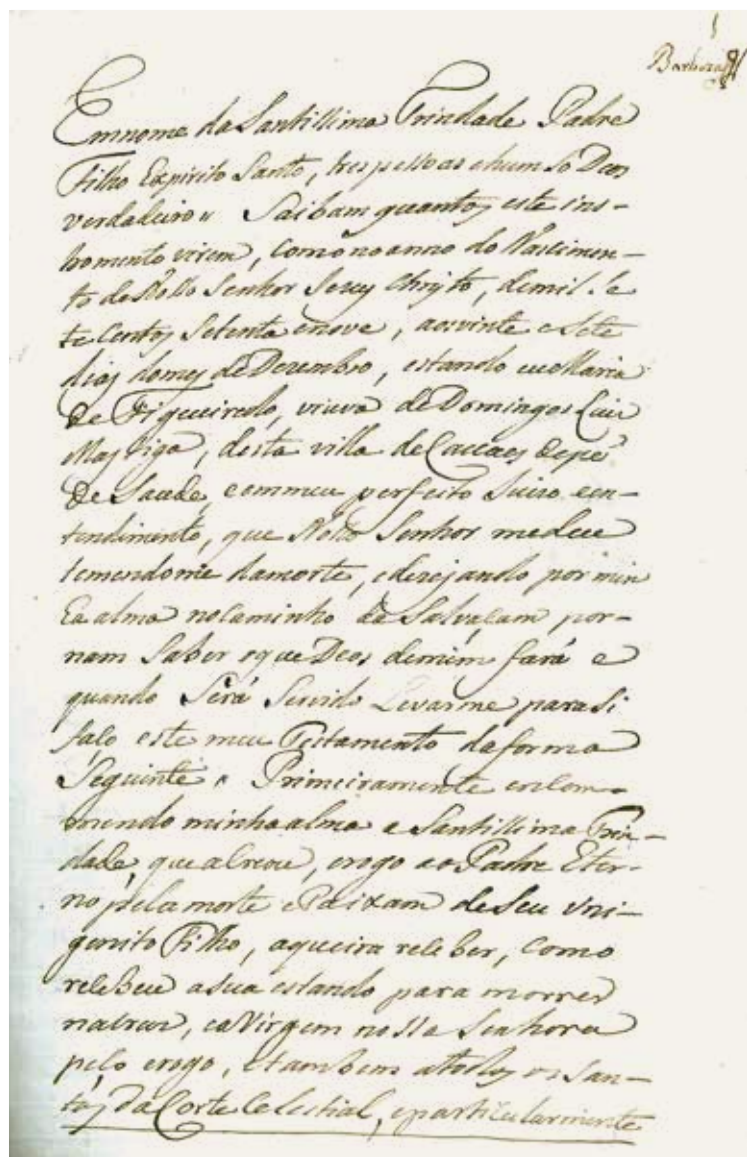 1
Barboza
Em nome da Santissima Trindade Padre
Filho Espirito Santo, tres pessoas e hum so Deos
verdadeiro " Saibam quantos este ins-
tromento virem, como no anno do Nascimen-
to de Nosso Senhor Jesus Christo, de mil se
te centos setenta e nove, aos vinte e sete
dias do mes de Dezembro, estando eu Maria
de Figueiredo, viuva de Domingos Luis
desta villa de de pé
de Saude, e com meu perfeito Juizo e en-
tendimento, que Nosso Senhor me deu
temendome da morte, e dezejando por min
ha alma no caminho da Salvaçam por-
nam saber o que Deos de mim fará e
quando será servido Levarme para si
faço este meu Testamento da forma
Seguinte " Primeiramente encom-
mendo minha alma a Santissima Trin-
dade, que a creou, e rogo ao Padre Eter-
no pela morte e Paixam de Seu Uni-
genito Filho, a queira receber, como
recebeu a sua estando para morrer
na cruz, e a Virgem nossa Senhora
peço e rogo, e tambem a todos os San-
tos da Corte Celestial, e particularmente